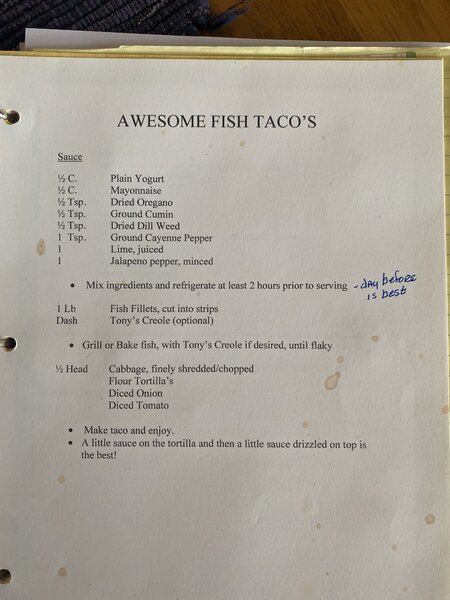 AWESOME FISH TACO'S
Sauce
½ C. Plain Yogurt
½ C. Mayonnaise
½ Tsp. Dried Oregano
½ Tsp. Ground Cumin
½ Tsp. Dried Dill Weed
1 Tsp. Ground Cayenne Pepper
1 Lime, juiced
1 Jalapeno pepper, minced
• Mix ingredients and refrigerate at least 2 hours prior to serving - day before
is best
1 Lb Fish Fillets, cut into strips
Dash Tony's Creole (optional)
• Grill or Bake fish, with Tony's Creole if desired, until flaky
½ Head Cabbage, finely shredded/chopped
Flour Tortilla's
Diced Onion
Diced Tomato
• Make taco and enjoy.
• A little sauce on the tortilla and then a little sauce drizzled on top is
the best!